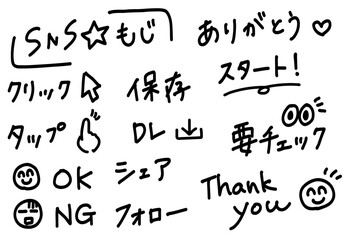 SNS☆もじ
ありがとう♡
クリック
保存
スタート!
タップ
DL
要チェック
OK
シェア
NG
フォロー
Thank
you